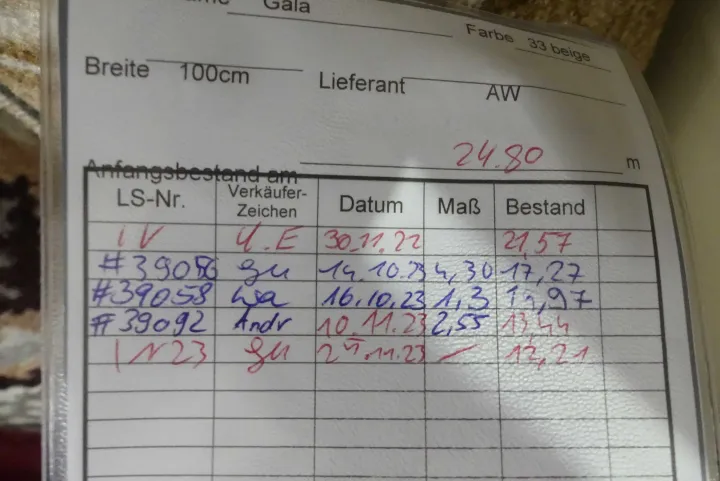 Gala Farbe 33 beige
Breite 100cm Lieferant AW
Anfangsbestand am 24.80 m
LS-Nr. Verkäufer-Zeichen Datum Maß Bestand
IV U.E 30.11.22 21,57
#39056 gu 14.10.23 4,30 17,27
#39058 wa 16.10.23 1,3 97
#39092 Andr 10.11.23 2,55 13,44
IN23 gu .11.23 – 12,21